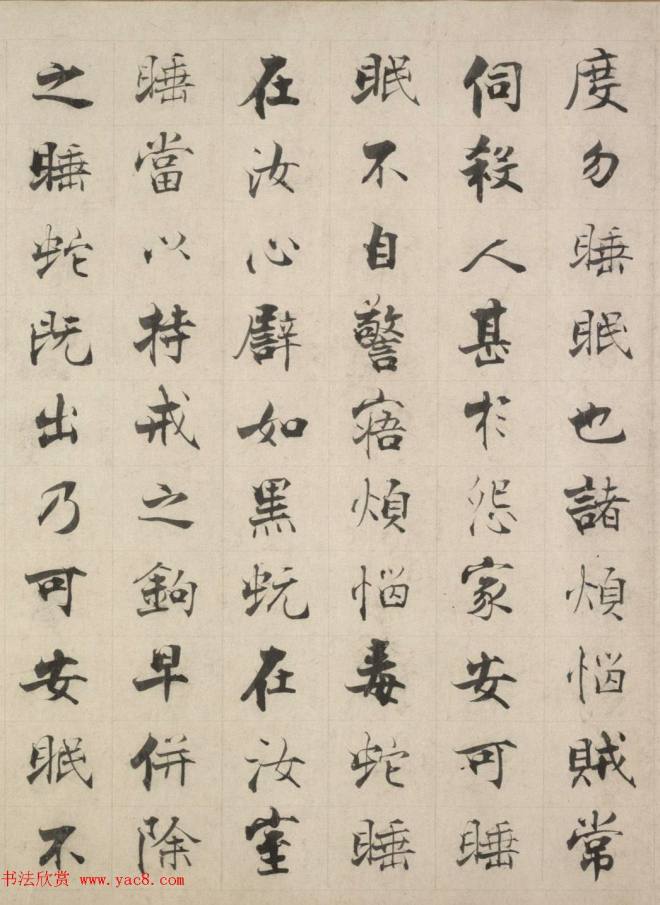 度勿睡眠也諸煩惱賊常
伺殺人甚於怨家安可睡
眠不自警寤煩惱毒蛇睡
在汝心譬如黑蚖在汝室
睡當以持戒之鉤早併除
之睡蛇既出乃可安眠不
书法欣赏 www.yac8.com